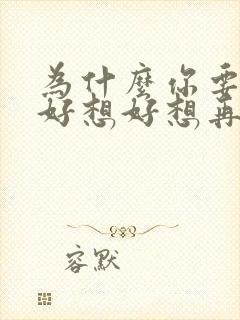 為什麼你要
好想,好想,再
容默